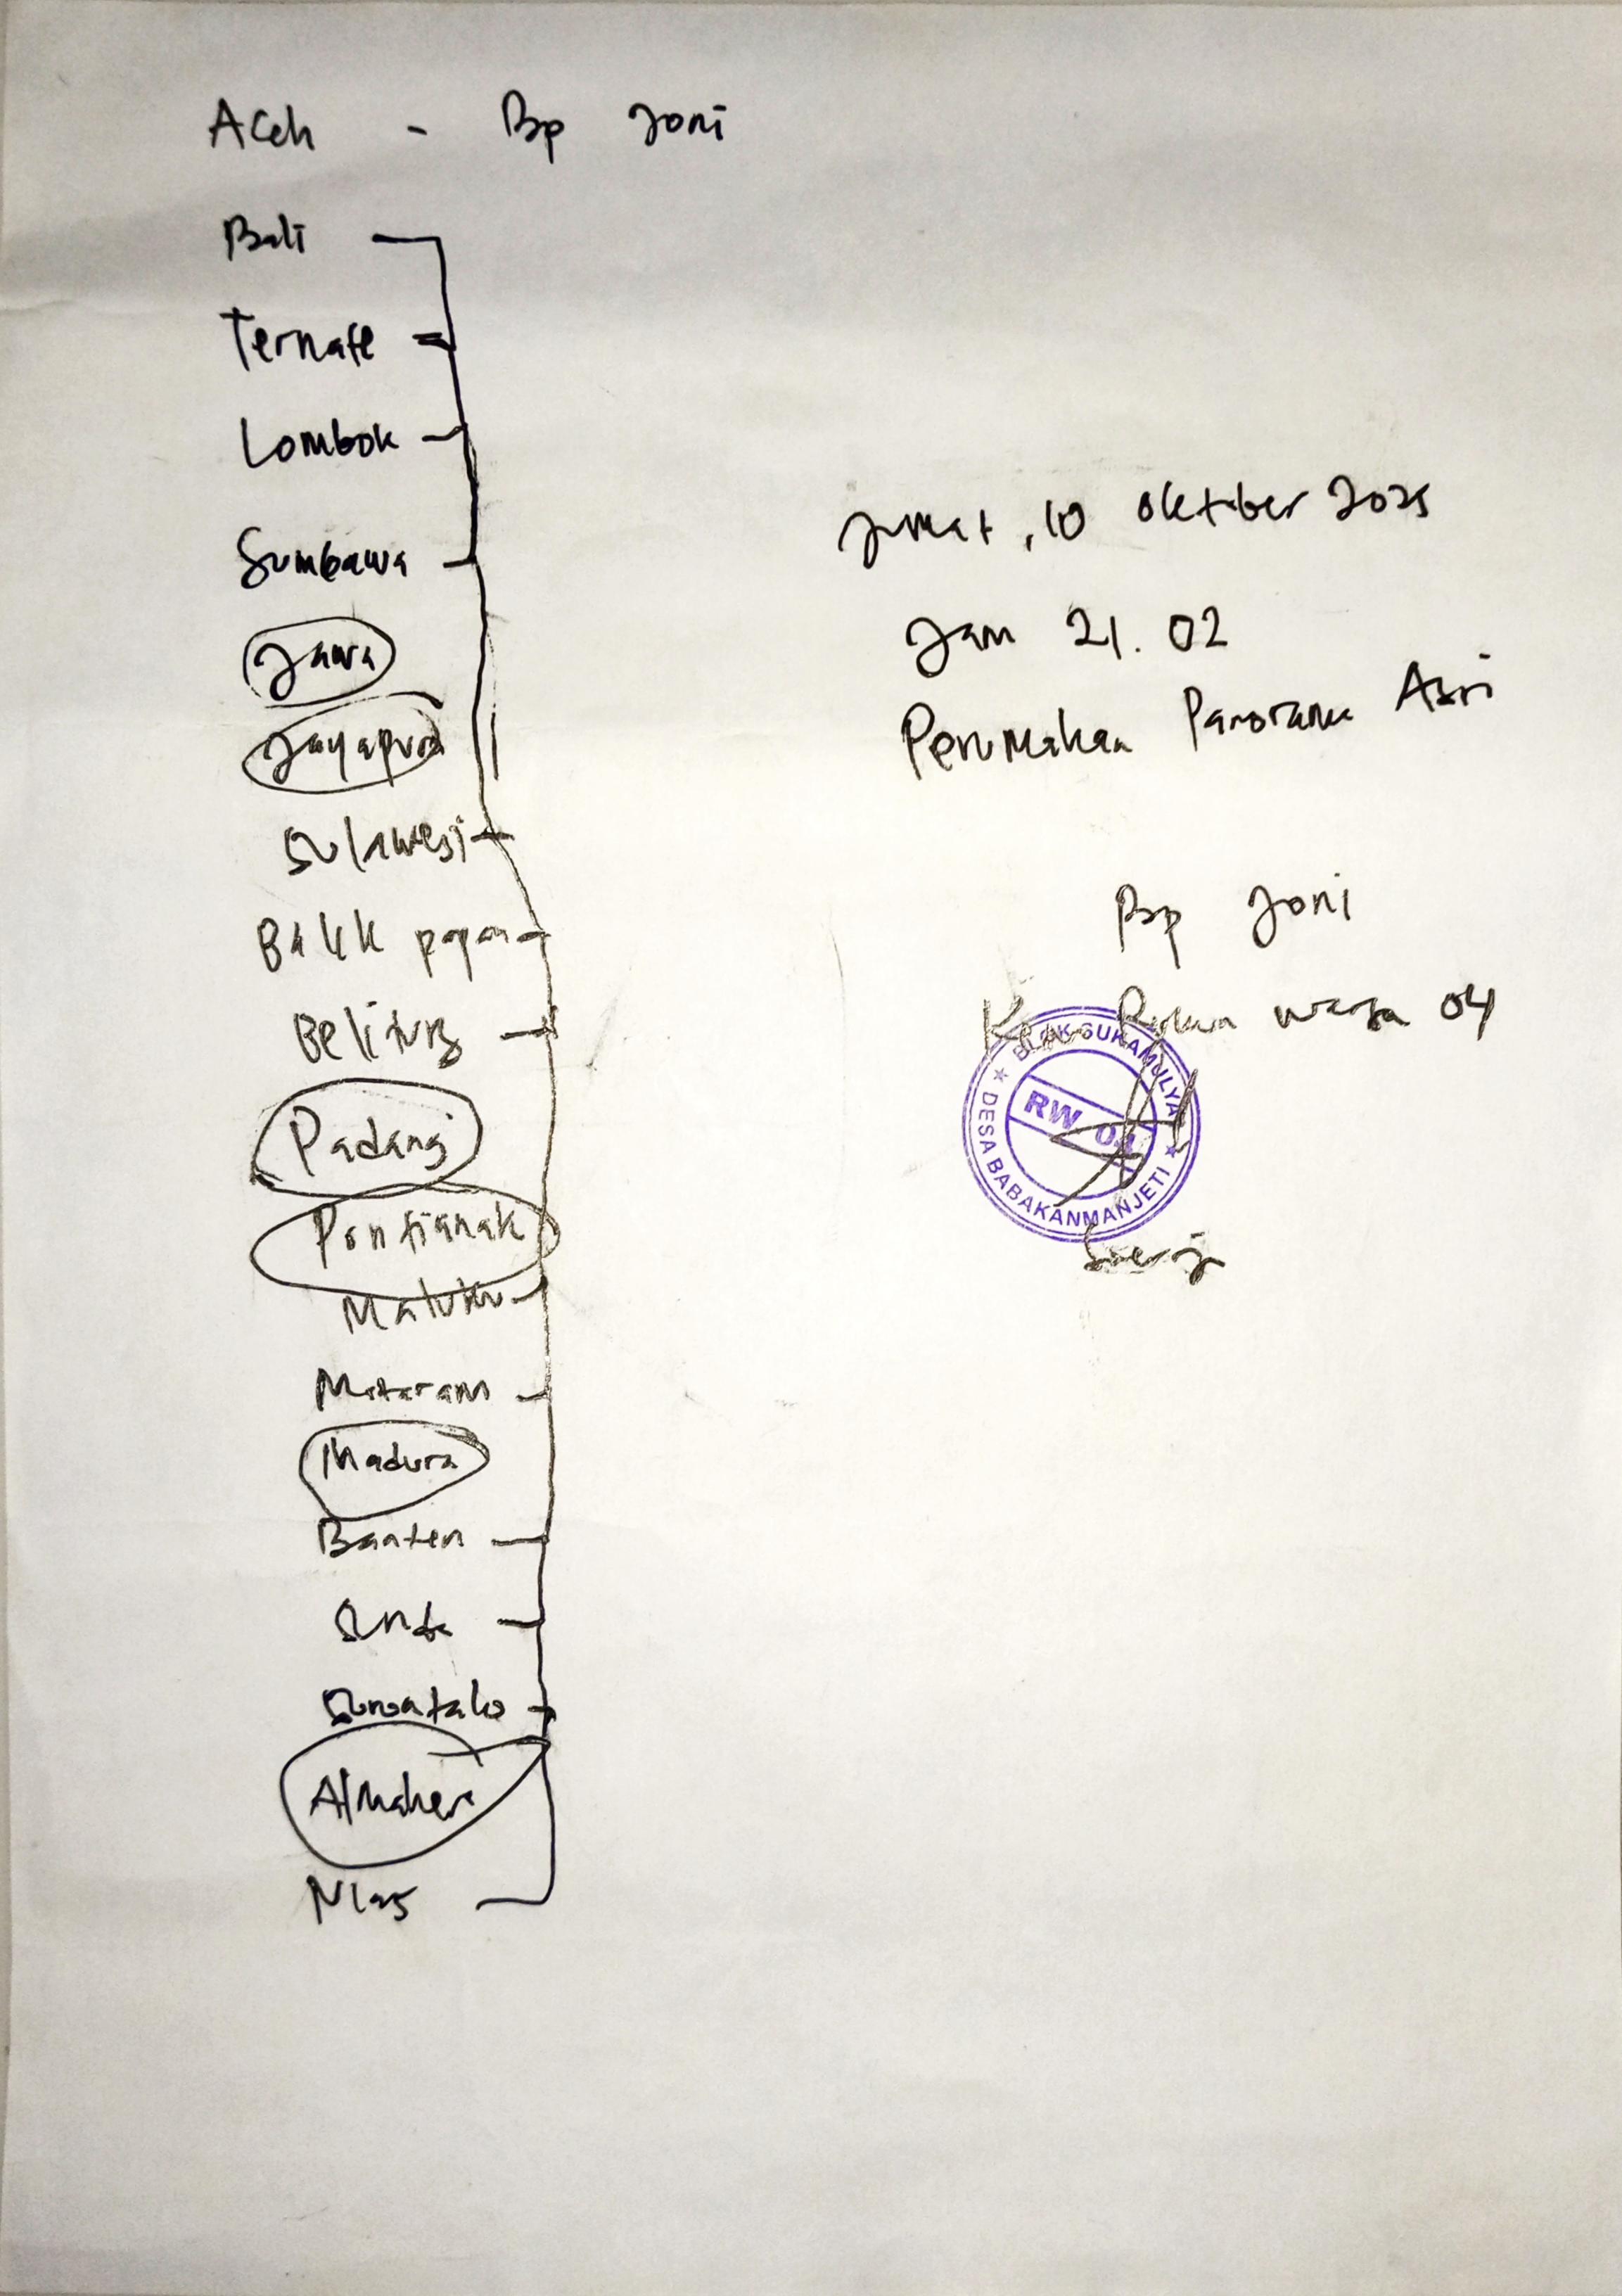 Aceh - Bp Joni
Bali
Ternate
Lombok
Sumbawa
Jawa
Jayapura
Sulawesi
Balik papan
Belitung
Padang
Pontianak
Maluku
Mataram
Madura
Banten
Sunda
Gorontalo
Almaher
Nias
Jumat, 10 Oktober 2025
Jam 21.02
Perumahan Panorama Asri
Bp Joni
Ketua Rukun warga 04
BLOK SUKAMULYA
RW 04
DESA BABAKANMANJETI